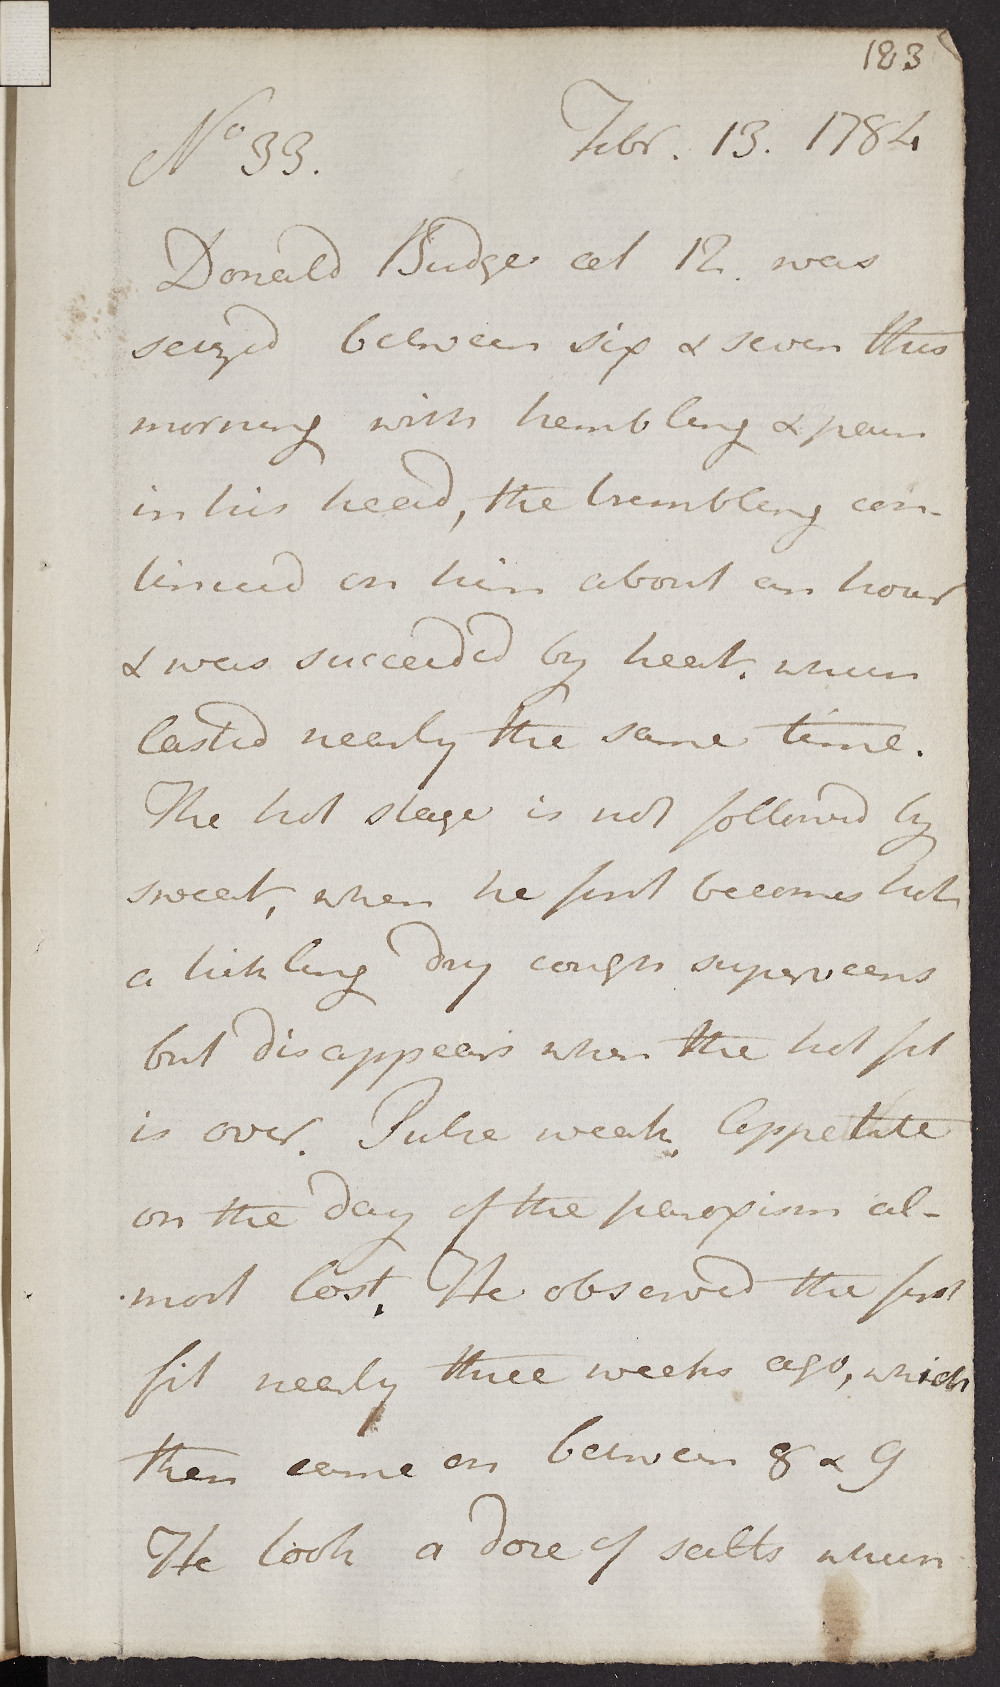 183
No 33. Febr. 13. 1784
Donald Budge aet 12. was
seized between six & seven this
morning with trembling & pain
in his head, the trembling con-
tinued on him about an hour
& was succeeded by heat. which
lasted nearly the same time.
The hot stage is not followed by
sweat, when he first becomes hot
a tickling dry cough superveens
but disappears when the hot fit
is over. Pulse weak. Appetite
on the day of the paroxism al-
most lost. He observed the first
fit nearly three weeks ago, which
then came on between 8 & 9
He took a dose of salts which